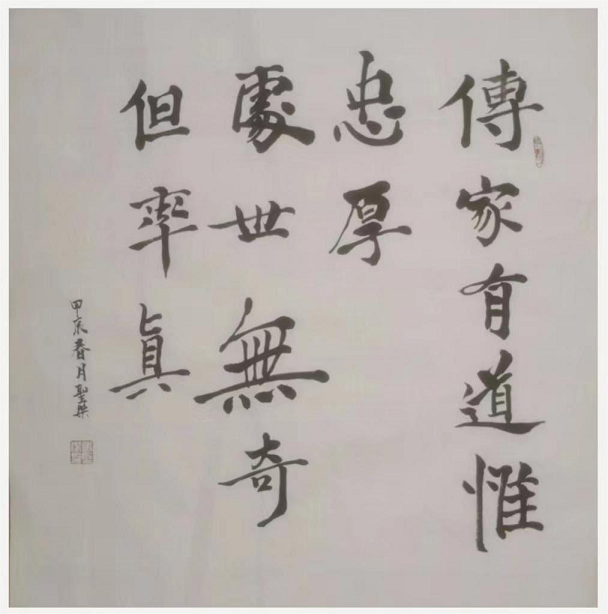 傳家有道惟
忠厚
處世無奇
但率真
甲午春月聖樂